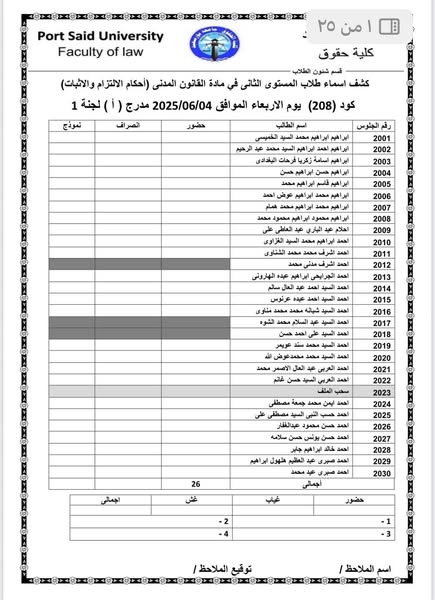 ١ من ٢٥
Port Said University
Faculty of law
كلية حقوق
قسم شئون الطلاب
كشف اسماء طلاب المستوى الثانى في مادة القانون المدنى (أحكام الالتزام والاثبات)
كود (208) يوم الاربعاء الموافق 2025/06/04 مدرج ( أ ) لجنة 1
رقم الجلوس اسم الطالب حضور الصراف نموذج
2001 ابراهيم ابراهيم محمد السيد الخميسى
2002 ابراهيم احمد ابراهيم السيد محمد عبد الرحيم
2003 ابراهيم اسامة زكريا فرحات البغدادى
2004 ابراهيم حسن ابراهيم حسن
2005 ابراهيم قاسم ابراهيم محمد
2006 ابراهيم محمد ابراهيم عوض احمد
2007 ابراهيم محمد ابراهيم محمد همام
2008 ابراهيم محمود ابراهيم محمود محمد
2009 احلام عبد الباري عبد العاطى على
2010 احمد ابراهيم محمد السيد الغزاوى
2011 احمد اشرف محمد محمد الشناوى
2012 احمد اشرف مدنى محمد
2013 احمد الجرايحى ابراهيم عبده الهارونى
2014 احمد السيد احمد عبد العال سالم
2015 احمد السيد احمد عبده عرنوس
2016 احمد السيد شبانه محمد محمد مناوى
2017 احمد السيد عبد السلام محمد الشوه
2018 احمد السيد على احمد حسن
2019 احمد السيد محمد سند عويمر
2020 احمد السيد محمد محمدعوض الله
2021 احمد العربى عبد العال الاصمر محمد
2022 احمد العربى السيد حسن غانم
2023 سحب الملف
2024 احمد ايمن محمد جمعة مصطفى
2025 احمد حسب النبى السيد مصطفى على
2026 احمد حسن محمود عبدالغفار
2027 احمد حسن يونس حسن سلامه
2028 احمد خالد ابراهيم جابر
2029 احمد صبرى عبد العظيم هلهول ابراهيم
2030 احمد صبرى عيد محمد
أجمالى 26
حضور غياب غش اجمالى
1 - 2 -
3 - 4 -
اسم الملاحظ / توقيع الملاحظ /